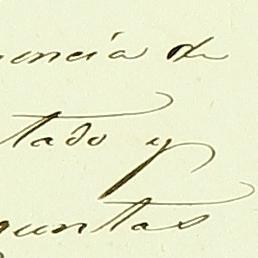 encia de
tado y
guntas